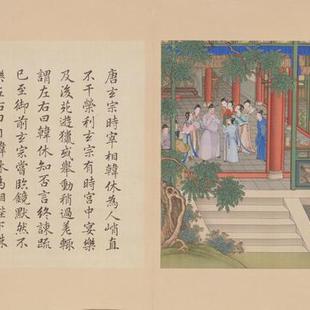 唐玄宗時宰相韓休為人峭直
不干榮利玄宗有時宮中宴樂
及後苑遊獵或舉動稍過差輒
謂左右曰韓休知否言終諫疏
已至御前玄宗嘗臨鏡默然不
樂左右曰自韓休為相陛下殊